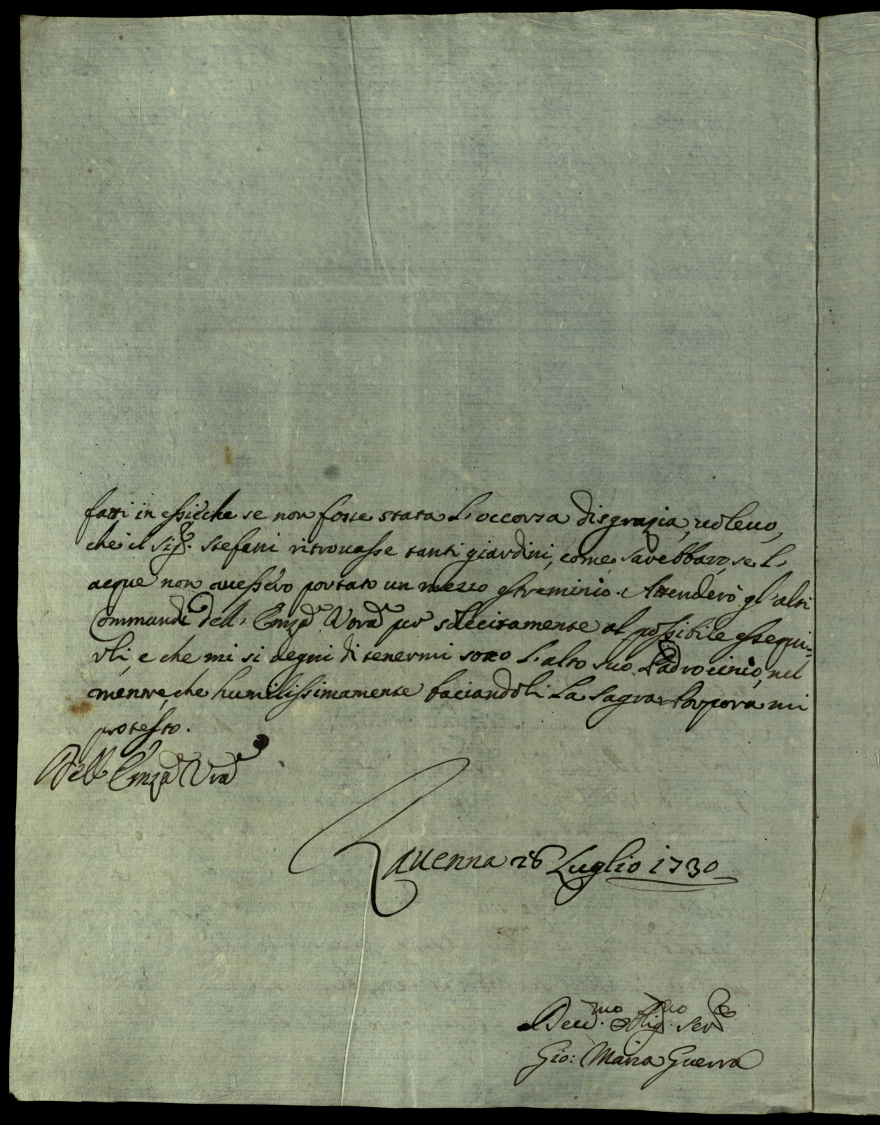 fatti in essi, che se non fosse stata l'occorsa disgrazia, volevo,
che il Sig.r Stefani ritrovasse tanti giardini, come sarebbaro, se l'
acque non avessero portato un mezzo estreminio. Attenderò gl'altri
Commandi dell' Emza Vora per solecitamente al possibile essequi-
rli, e che mi si degni di tenermi sotto l'alto suo Padrocinio, nel
mentre, che humilissimamente baciandoli la Sagra Porpora mi
protesto.
Dell' Emza Vra
Ravenna 26 Luglio 1730
Devmo Obligmo Sere
Gio: Maria Guerra